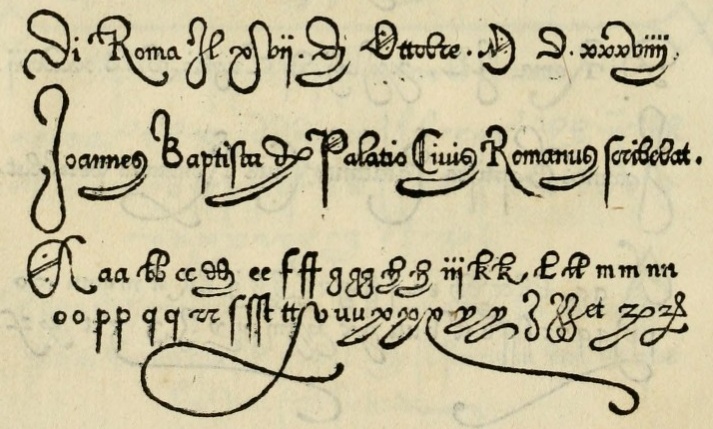 Di Roma Il xvii. di Ottobre. M D. xxxviiii.
Joannes Baptista de Palatio Civis Romanus scribebat.
A aa bb cc dd ee f ff g gg h h iii k k l ll m m n n
o o p p q q rr ſ ſſt tt v uu x x x y y Z Z et